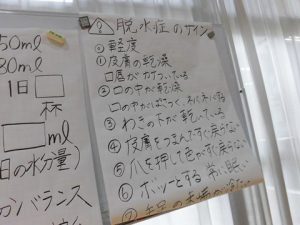 50ml
80ml
1日
杯
ml
日の水分量)
分バランス
脱水症のサイン
◎軽度
①皮膚の乾燥
口唇がカサついている
②口の中が乾燥
口の中がねばつく、ネバネバする
③わきの下が乾いている
④皮膚をつまんですぐ戻らない
⑤爪を押して色がすぐ戻らない
⑥ボーッとする 常に眠い
⑦手足の末端が冷たい